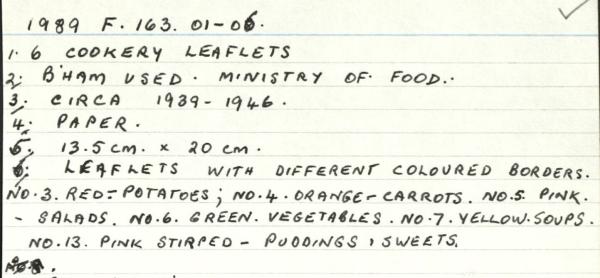 1989 F. 163. 01-06.
1. 6 COOKERY LEAFLETS
2. B'HAM USED. MINISTRY OF FOOD.
3. CIRCA 1939-1946.
4. PAPER.
5. 13.5 cm. x 20 cm.
6. LEAFLETS WITH DIFFERENT COLOURED BORDERS.
NO.3. RED=POTATOES; NO.4. ORANGE-CARROTS. NO.5. PINK.
- SALADS. NO.6. GREEN. VEGETABLES. NO.7. YELLOW. SOUPS.
NO.13. PINK STIRPED - PUDDINGS, SWEETS.